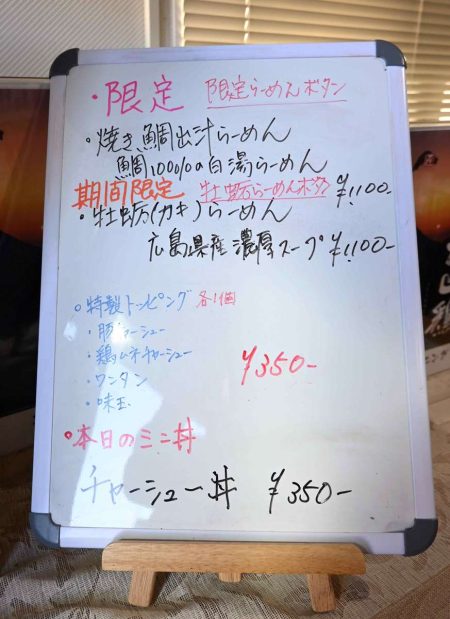 ・限定 限定らーめんボタン
・焼き鯛出汁らーめん
鯛100%の白湯らーめん
¥1,100-
期間限定 牡蛎らーめんボタン
・牡蛎(カキ)らーめん
広島県産濃厚スープ ¥1,100-
・特製トッピング 各1個
・豚チャーシュー
・鶏ムネチャーシュー
・ワンタン
・味玉
¥350-
・本日のミニ丼
チャーシュー丼 ¥350-